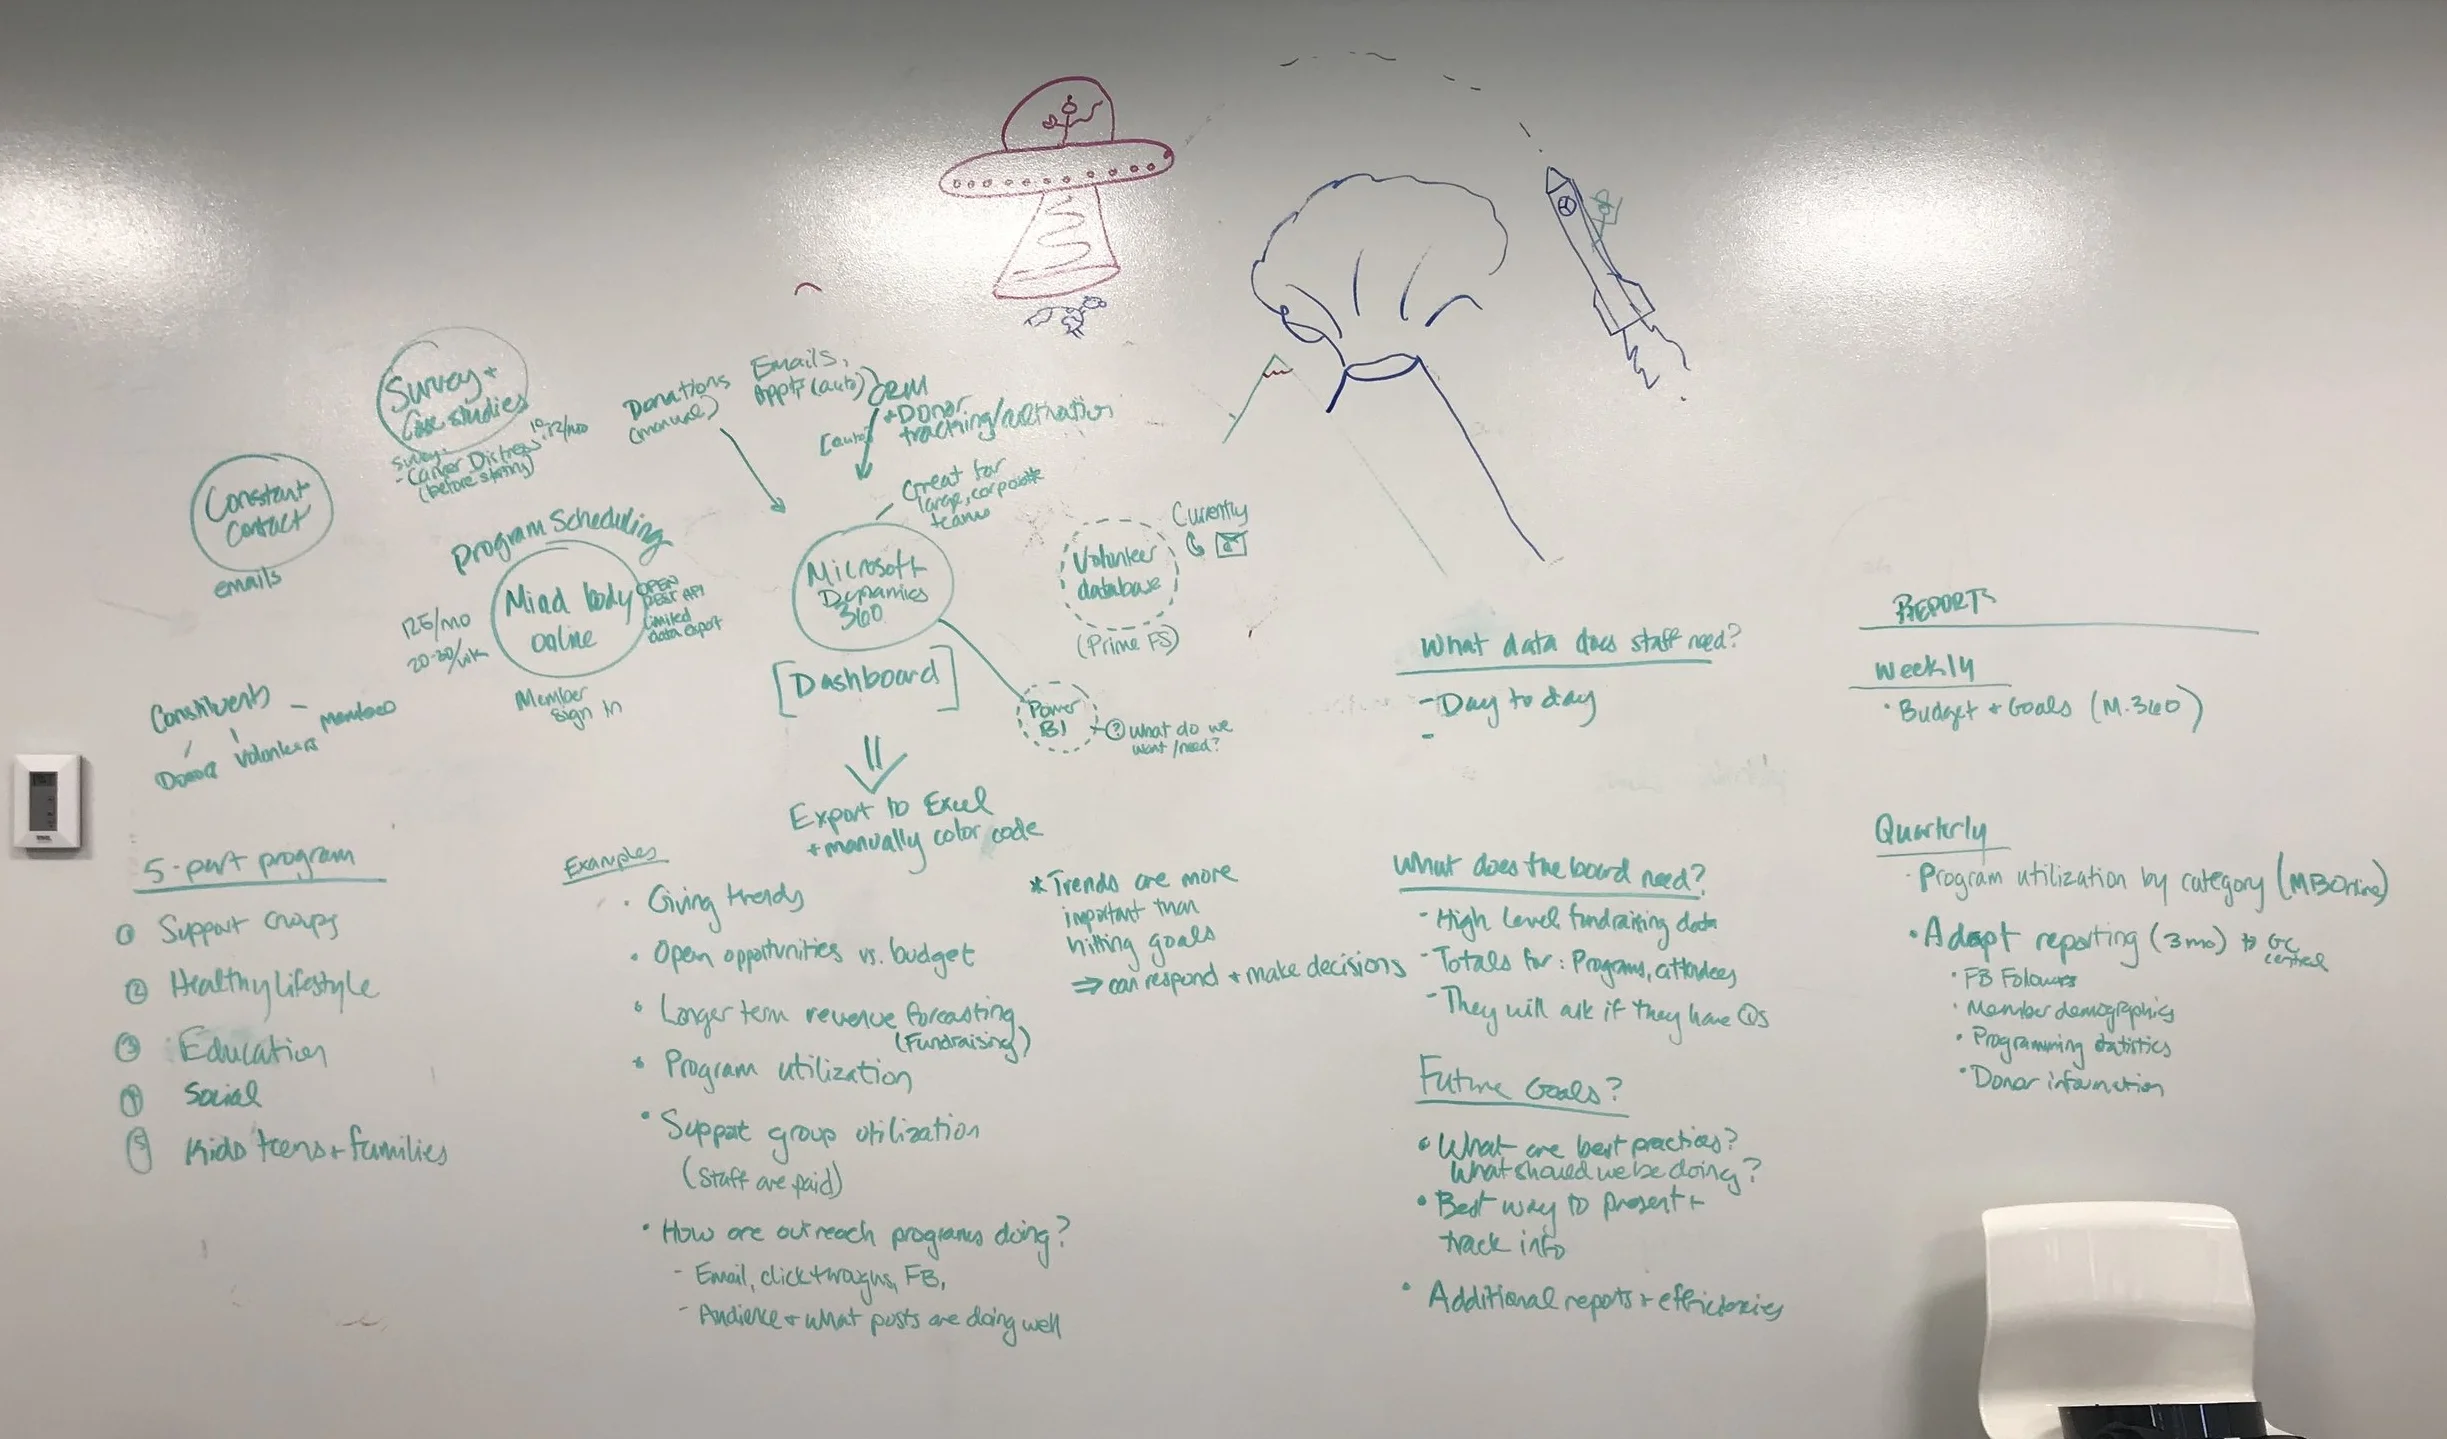 Survey +
Case studies
Survey:
- Cancer Distress
(before starting)
Donations
(manual)
Emails,
Appts (auto)
CRM
+ Donor
tracking/cultivation
[auto]
Great for
large, corporate
teams
Constant
Contact
emails
Program Scheduling
Mind body
online
OPEN
REST API
limited
data export
125/mo
20-30/wk
Member
sign in
Microsoft
Dynamics
360
[Dashboard]
Volunteer
database
(Prime FS)
Currently
Power
BI
? What do we
want/need?
Constituents
- members
Donors
Volunteers
Export to Excel
+ manually color code
5-part program
1 Support Groups
2 Healthy Lifestyle
3 Education
4 Social
5 Kids teens + families
Examples
• Giving trends
• Open opportunities vs. budget
• Longer term revenue forcasting
(Fundraising)
• Program utilization
• Support group utilization
(Staff are paid)
• How are outreach programs doing?
- Email, clickthroughs, FB,
- Audience + what posts are doing well
* Trends are more
important than
hitting goals
⇒ can respond + make decisions
What data does staff need?
- Day to day
-
What does the board need?
- High Level fundraising data
- Totals for: Programs, attendees
- They will ask if they have Qs
Future Goals?
• What are best practices?
What should we be doing?
• Best way to present +
track info
• Additional reports + efficiencies
REPORTS
Weekly
• Budget + Goals (M.360)
Quarterly
• Program utilization by category (MBOnline)
• Adapt reporting (3mo) to GC
central
• FB Followers
• Member demographics
• Programming statistics
• Donor information